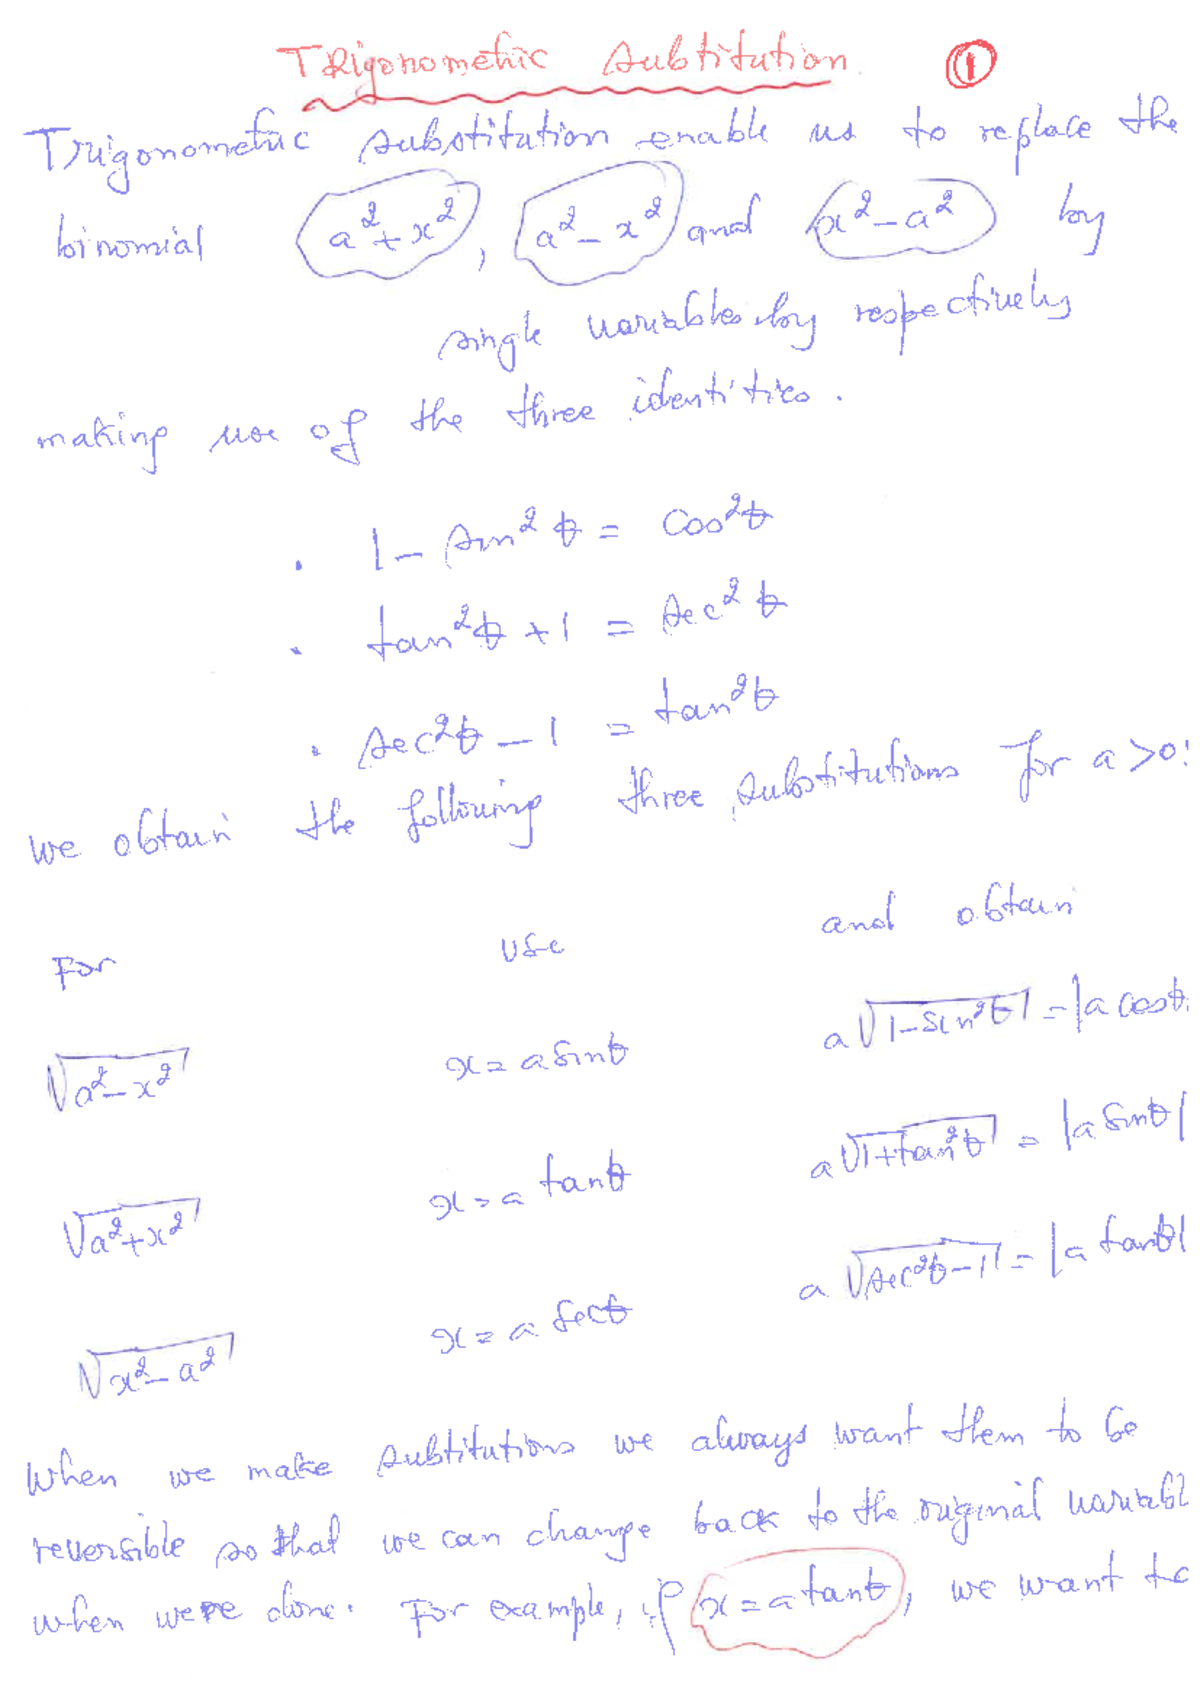 Trigonometric Subtitution. ①
Trigonometric substitution enable us to replace the
binomial a²+x², a²-x² and x²-a² by
single variables by respectively
making use of the three identities.
• 1 - sin²θ = cos²θ
• tan²θ + 1 = sec²θ
• sec²θ - 1 = tan²θ
we obtain the following three substitutions for a>0:
For use and obtain
√(a²-x²) x = a sinθ a√(1-sin²θ) = |a cosθ
√(a²+x²) x = a tanθ a√(1+tan²θ) = |a sinθ|
√(x²-a²) x = a secθ a√(sec²θ-1) = |a tanθ|
When we make subtitutions we always want them to be
reversible so that we can change back to the original variabl
when we're done. For example, if x = a tanθ, we want to